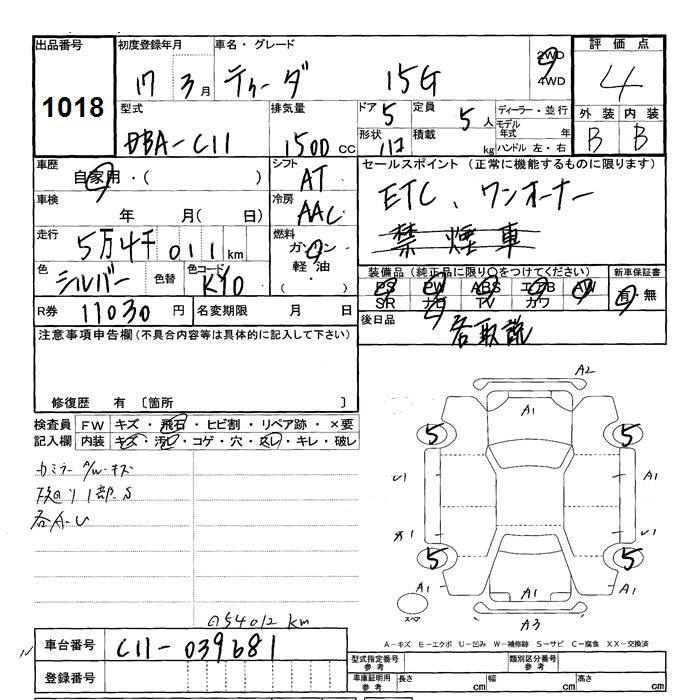 出品番号 初度登録年月 車名・グレード 評価点
1018 17 3月 ティーダ 15G 2WD 4WD 4
型式 排気量 ドア 5 定員 5人 ディーラー・並行 外装 内装
DBA-C11 1500 CC 形状 積載 kg モデル年式 年 ハンドル 左・右 B B
車歴 自家用・( ) シフト AT セールスポイント (正常に機能するものに限ります)
車検 年 月( 日) 冷房 AAC ETC、ワンオーナー
走行 5万4千011km 燃料 ガソリン 軽油 ・( ) 禁煙車
色 シルバー 色替 色コード KY0 装備品(純正品に限り○をつけてください) 新車保証書
PS PW ABS エアB AW 有・無
SR ナビ TV カワ
R券 11030円 名変期限 月 日 後日品 各取説
注意事項申告欄(不具合内容等は具体的に記入して下さい)
修復歴 有 〔箇所
検査員 記入欄 FW キズ・飛石・ヒビ割・リペア跡・×要
内装 キズ・汚れ・コゲ・穴・スレ・キレ・破レ
各A-U
A2
A1
5 5
A1
U1
5 5
A1 A1 A1
スペア A3
54012km
A-キズ E-エクボ U-凹み W-補修跡 S-サビ C-腐食 XX-交換済
車台番号 C11-039681
型式指定番号 参考 類別区分番号 参考
登録番号 車庫証明用 参考 長さ cm 幅 cm 高さ cm